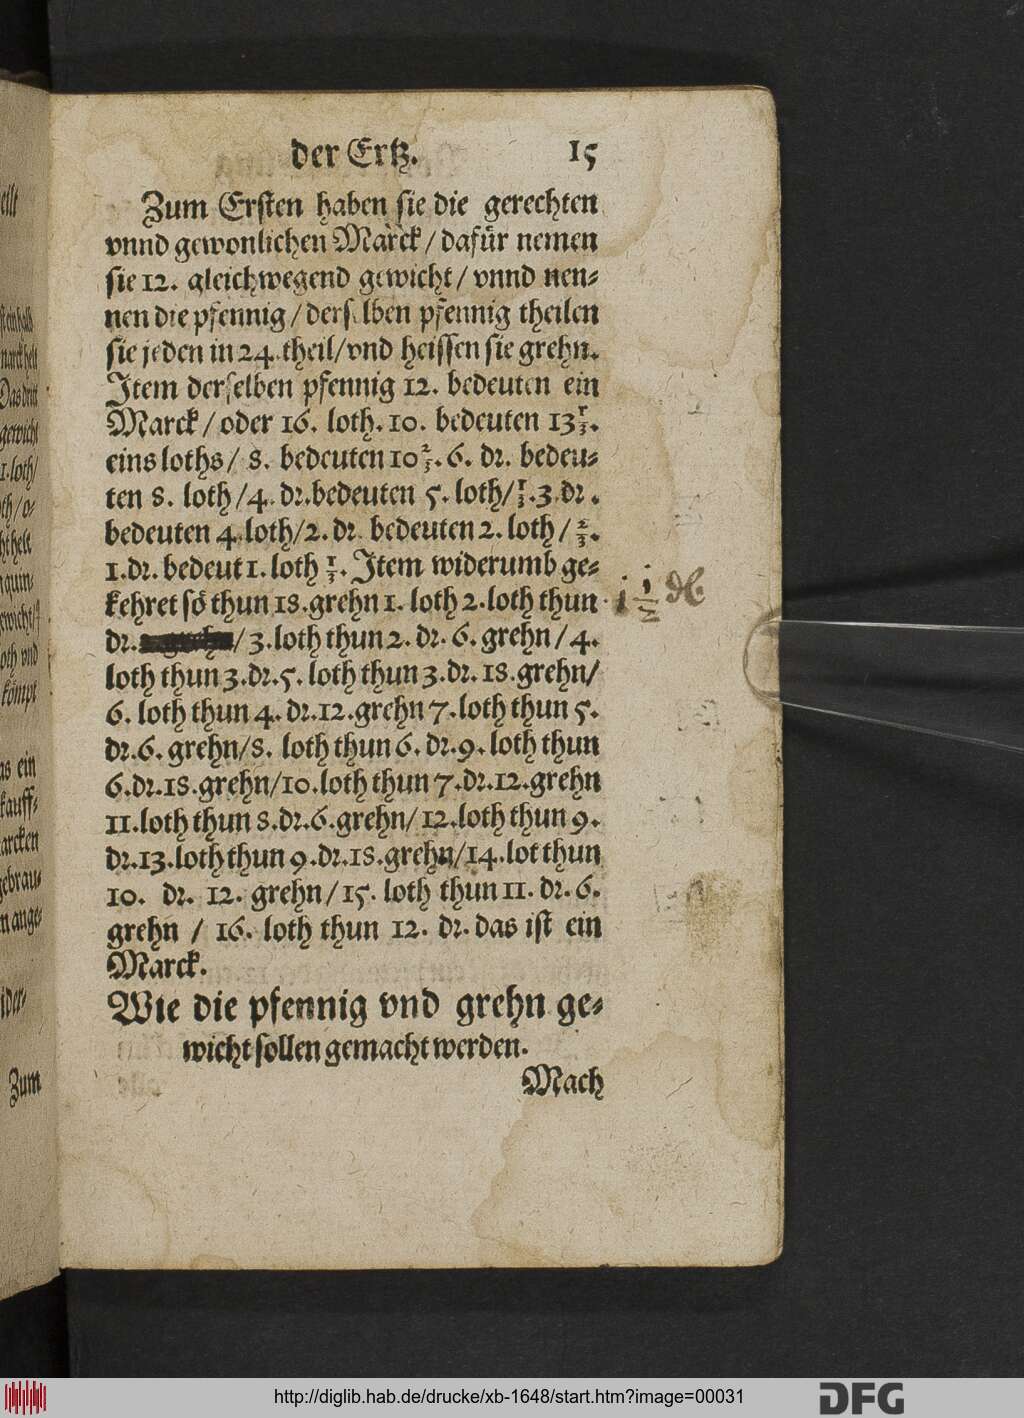 der Ertz. 15
Zum Ersten haben sie die gerechten
vnnd gewonlichen Marck / dafür nemen
sie 12. gleichwegend gewicht / vnnd nen⸗
nen die pfennig / derselben pfennig theilen
sie jeden in 24. theil / vnd heissen sie grehn.
Item derselben pfennig 12. bedeuten ein
Marck / oder 16. loth. 10. bedeuten 13 1/3.
eins loths / 8. bedeuten 10 2/3. 6. dr. bedeu⸗
ten 8. loth / 4. dr. bedeuten 5. loth / 1/3. 3. dr.
bedeuten 4. loth / 2. dr. bedeuten 2. loth / 2/3.
1. dr. bedeut 1. loth 1/3. Item widerumb ge⸗
kehret sö thun 18. grehn 1. loth 2. loth thun
1 1/2 dℓ
dr. / 3. loth thun 2. dr. 6. grehn / 4.
loth thun 3. dr. 5. loth thun 3. dr. 18. grehn /
6. loth thun 4. dr. 12. grehn 7. loth thun 5.
dr. 6. grehn / 8. loth thun 6. dr. 9. loth thun
6. dr. 18. grehn / 10. loth thun 7. dr. 12. grehn
11. loth thun 8. dr. 6. grehn / 12. loth thun 9.
dr. 13. loth thun 9. dr. 18. grehn / 14. lot thun
10. dr. 12. grehn / 15. loth thun 11. dr. 6.
grehn / 16. loth thun 12. dr. das ist ein
Marck.
Wie die pfennig vnd grehn ge⸗
wicht sollen gemacht werden.
Mach
Zum
http://diglib.hab.de/drucke/xb-1648/start.htm?image=00031
DFG